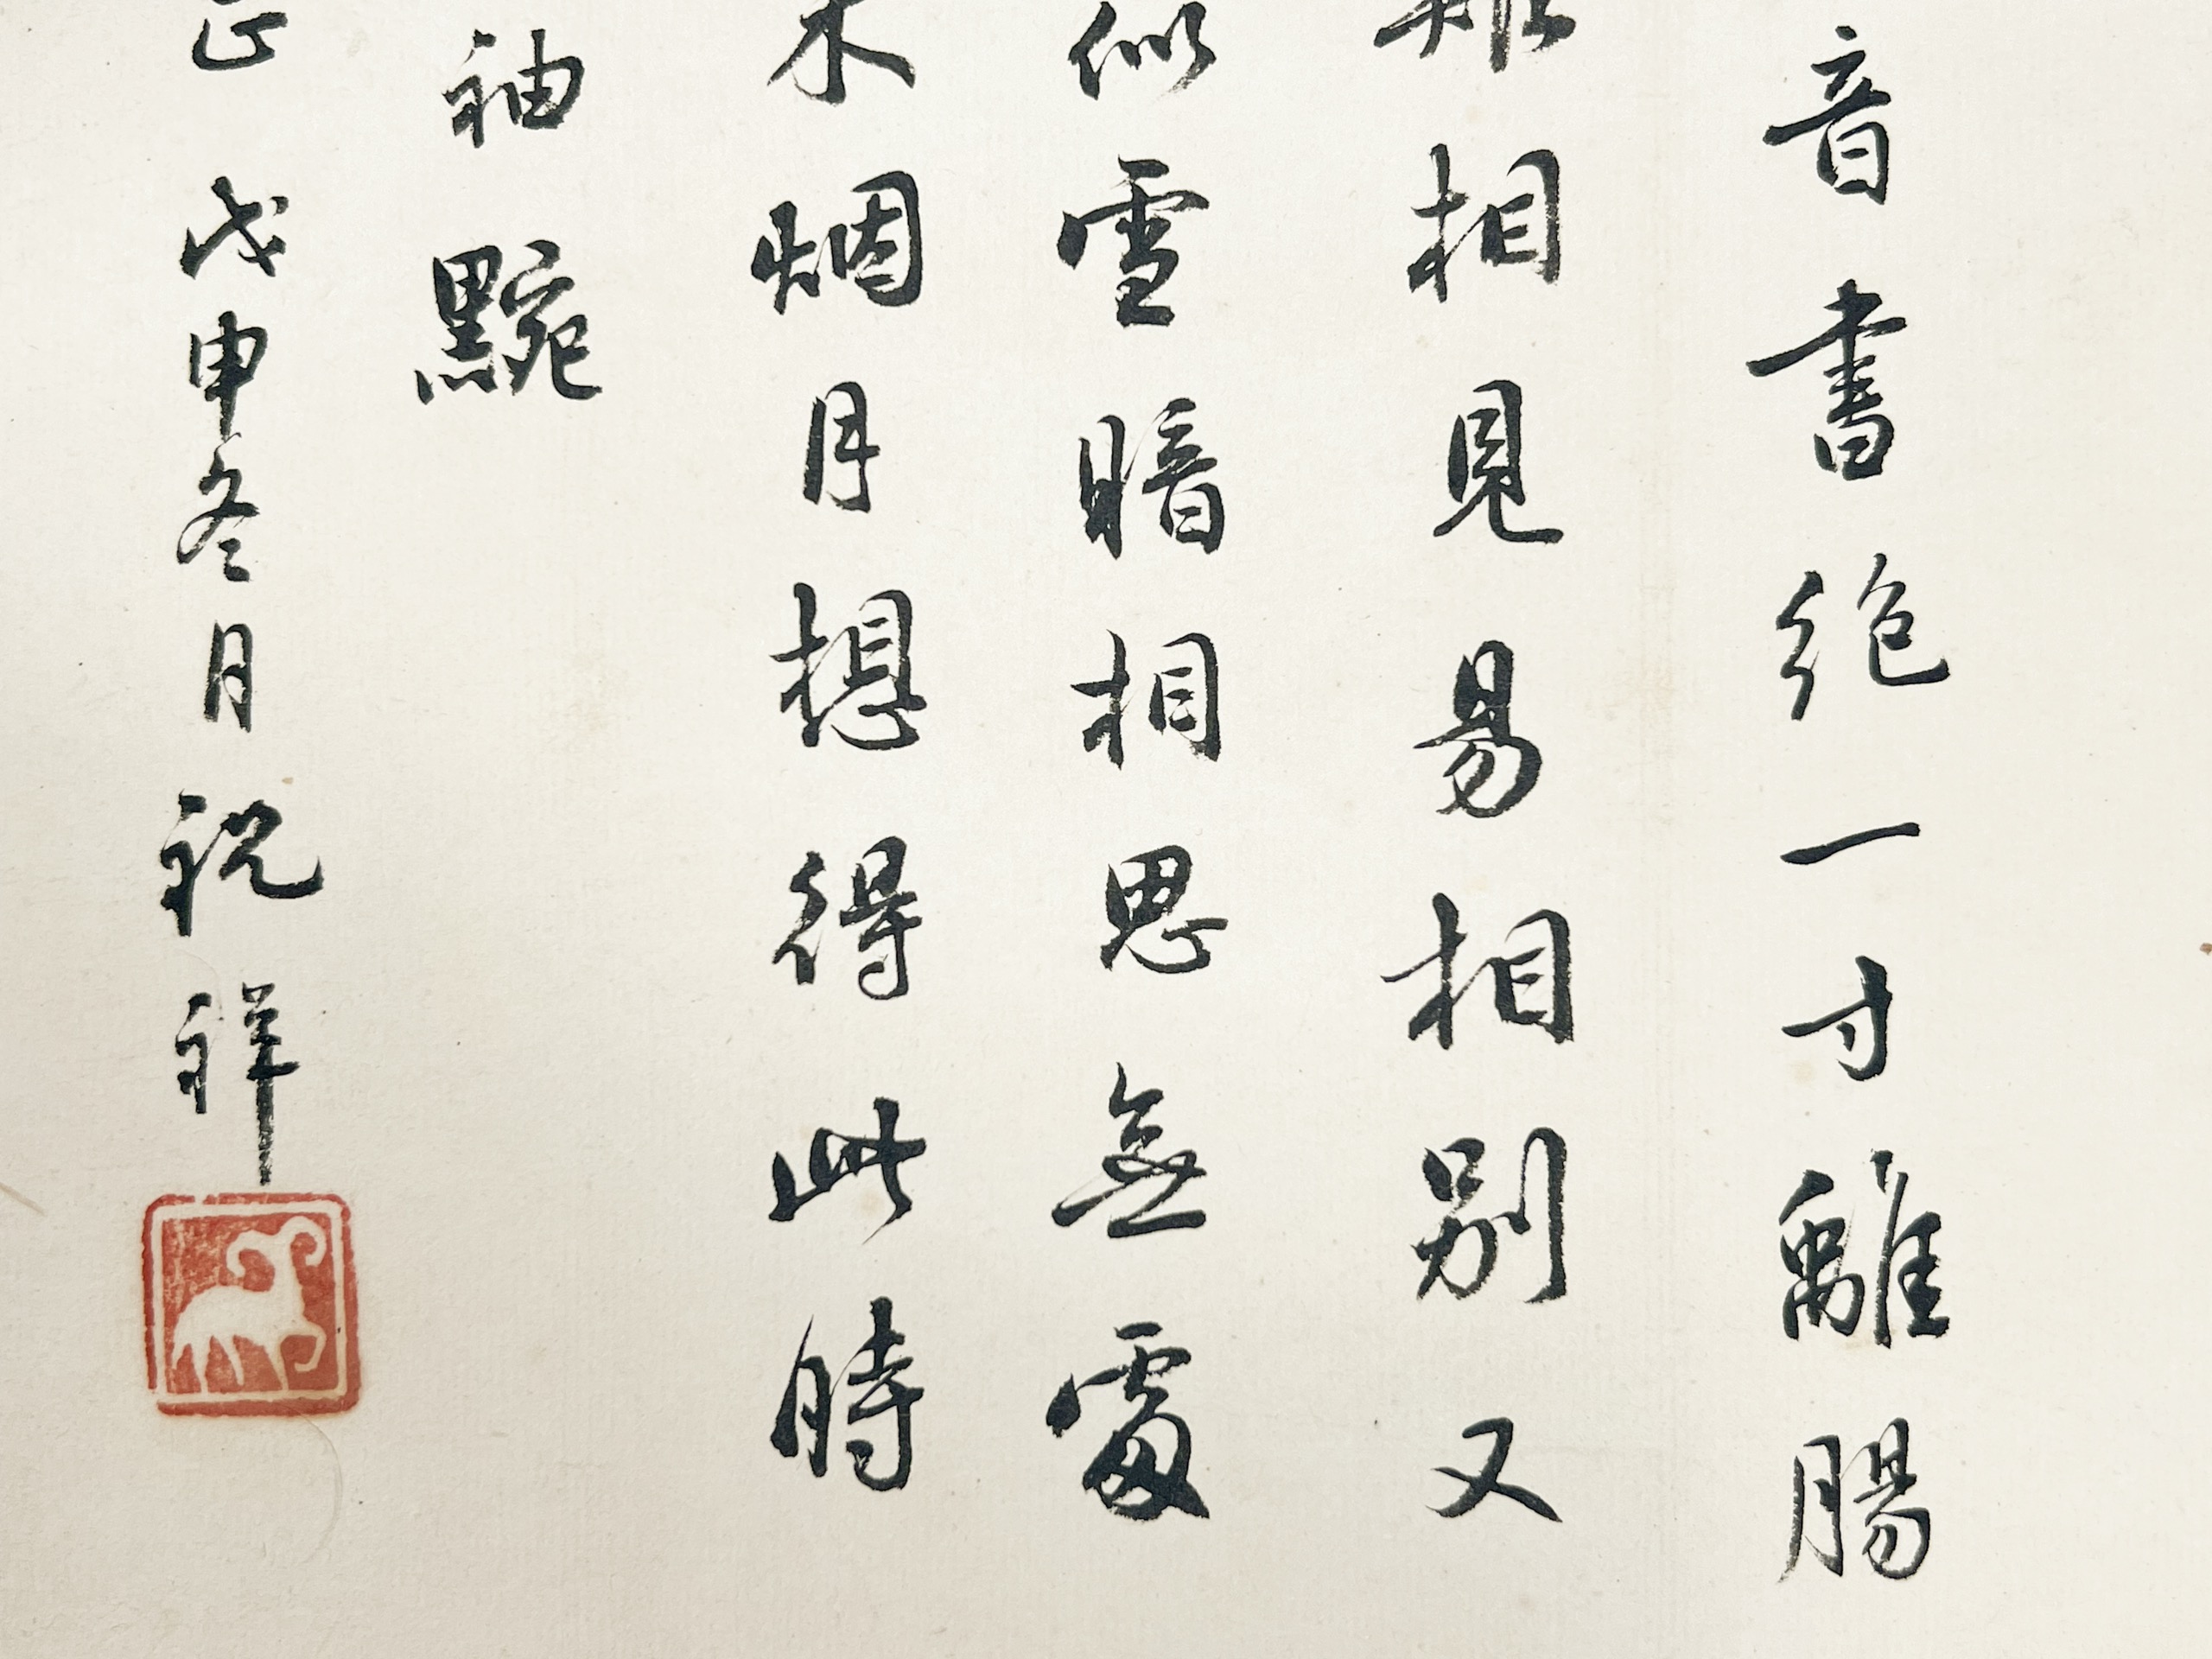 音書絕一寸離腸
難相見易相別又
似雪暗相思無處
水烟月想得此時
袖黦
正 戊申冬月祝祥